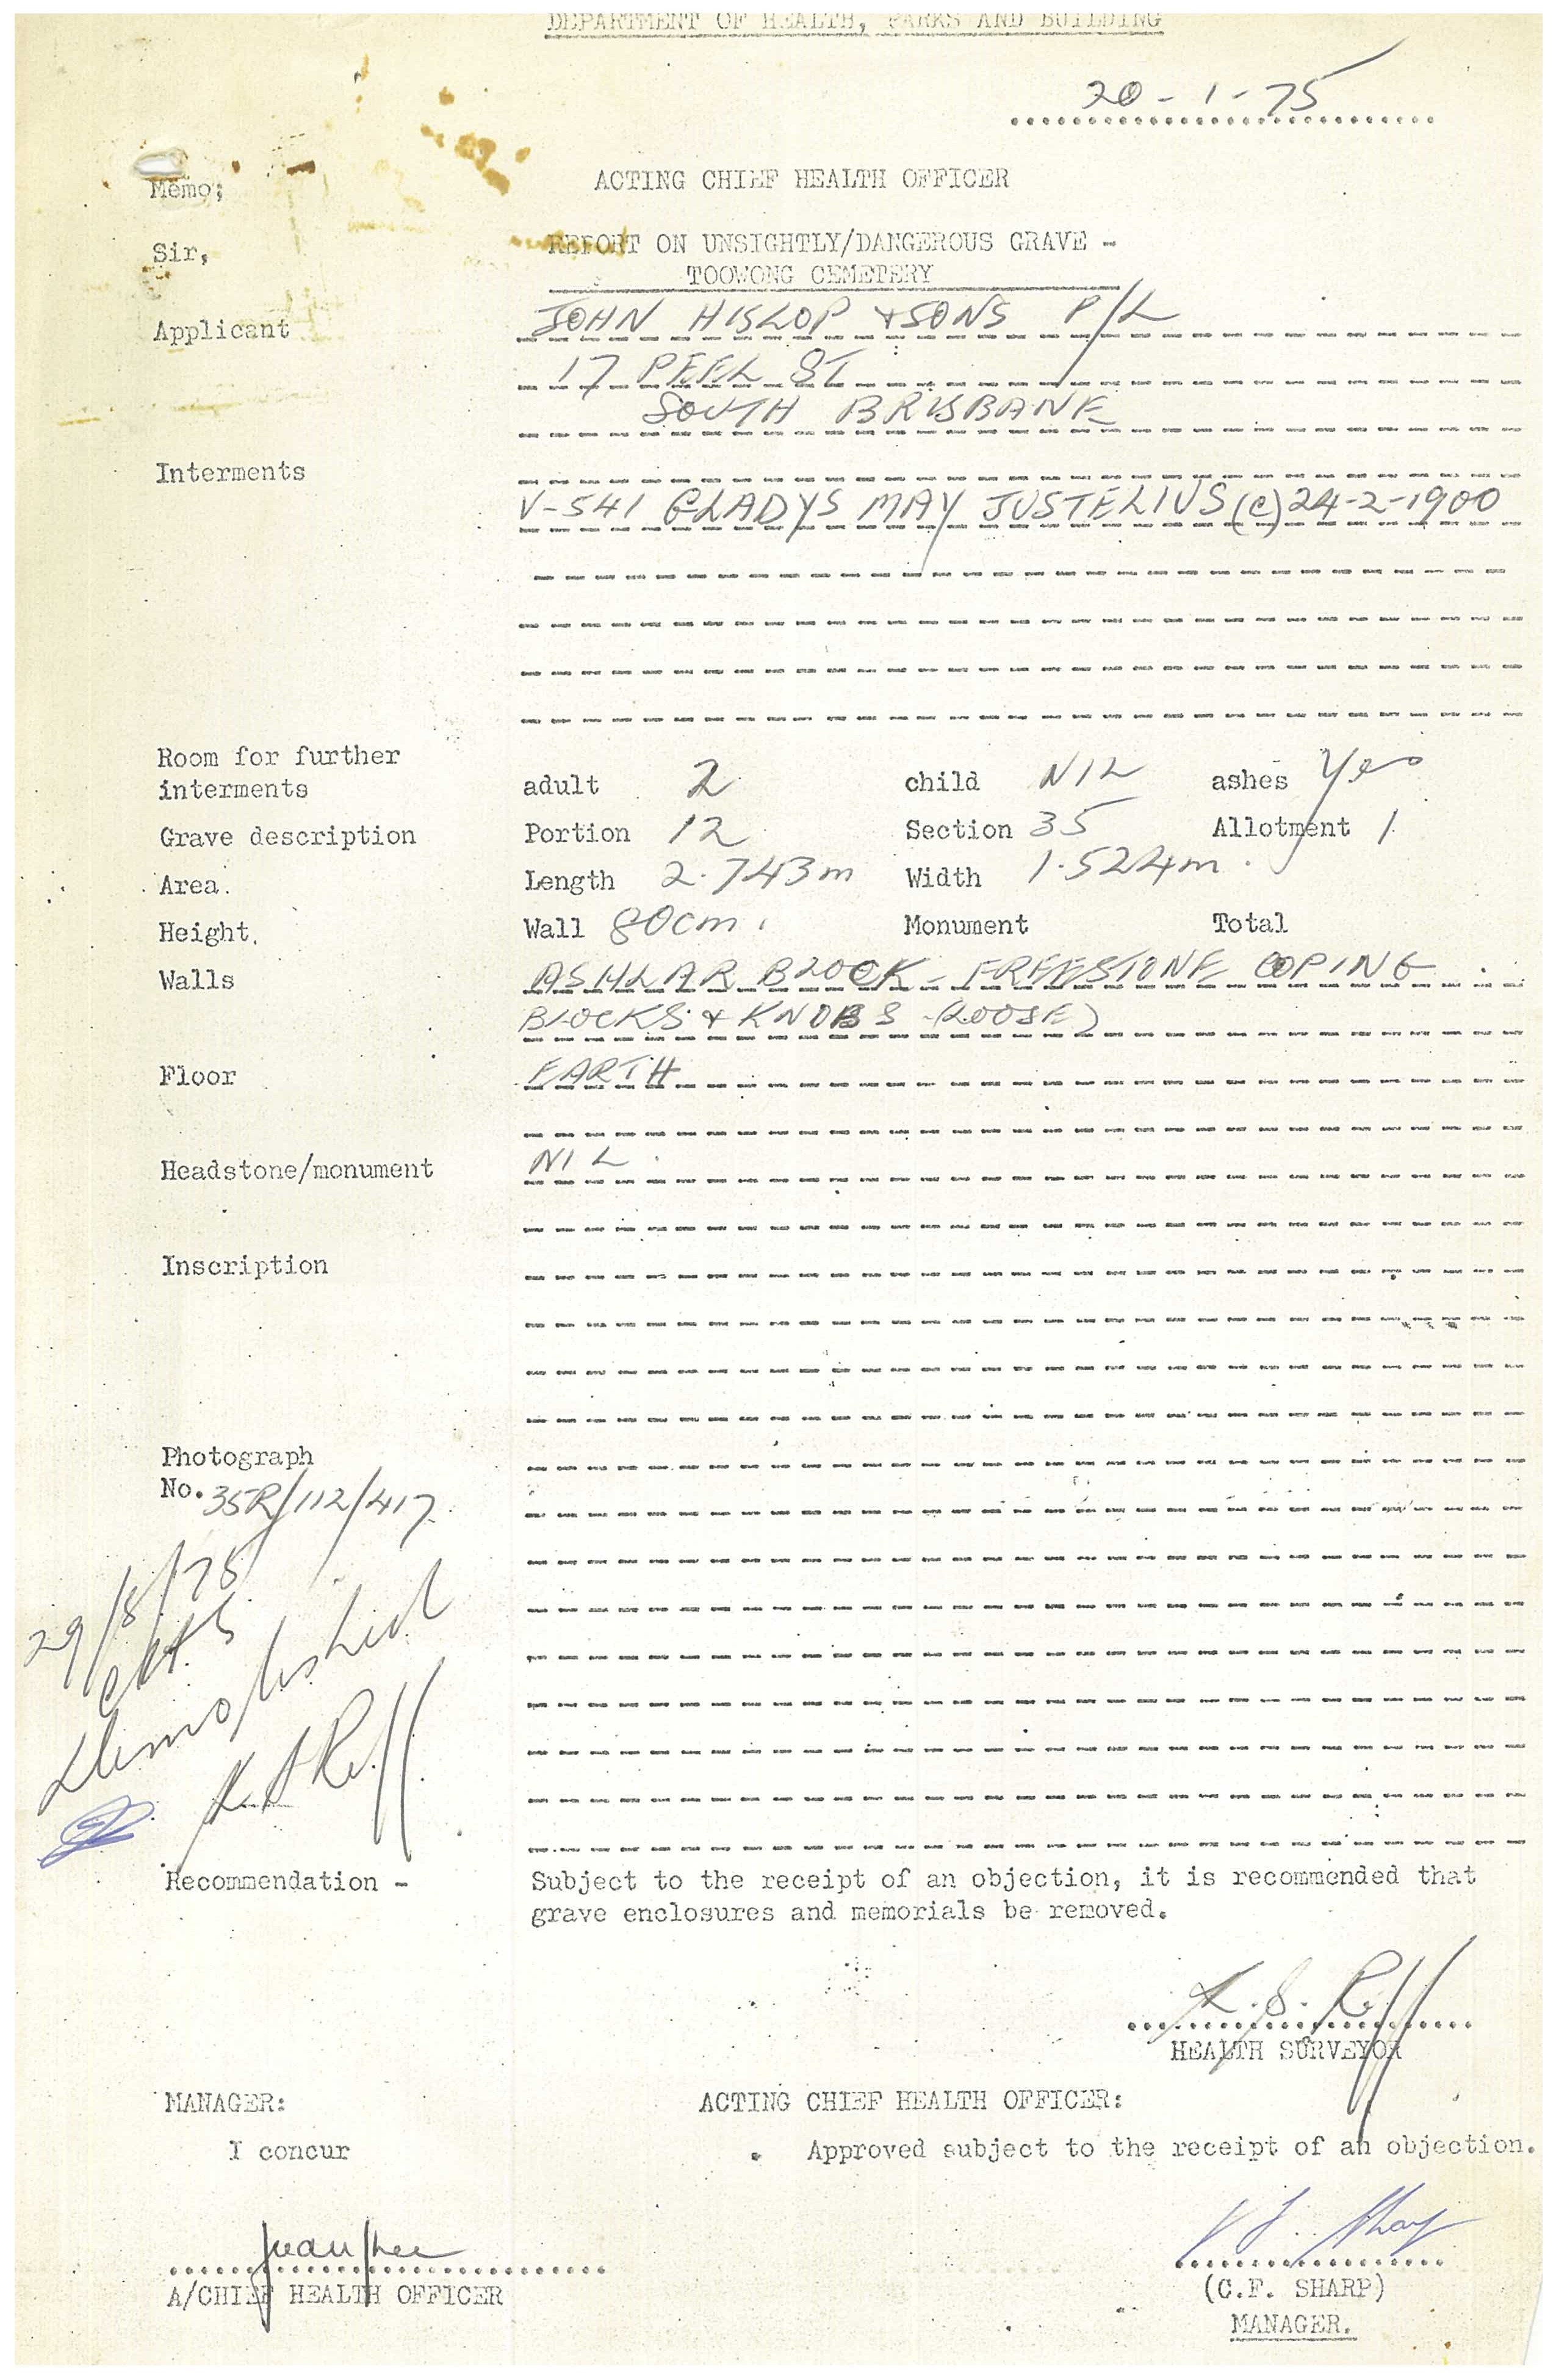 DEPARTMENT OF HEALTH, PARKS AND BUILDING
20-1-75
Memo; ACTING CHIEF HEALTH OFFICER
Sir, REPORT ON UNSIGHTLY/DANGEROUS GRAVE -
TOOWONG CEMETERY
Applicant JOHN HISLOP & SONS P/L
17 PEEL ST
SOUTH BRISBANE
Interments
V-541 GLADYS MAY JUSTELIUS (C) 24-2-1900
Room for further
interments adult 2 child NIL ashes Yes
Grave description Portion 12 Section 35 Allotment 1
Area. Length 2.743m Width 1.524m.
Height. Wall 80cm. Monument Total
Walls ASHLAR BLOCK - FREESTONE COPING
BLOCKS & KNOBS - (LOOSE)
Floor EARTH
Headstone/monument NIL.
Inscription
Photograph
No. 35R/112/417
29/8/75
demolished
Recommendation - Subject to the receipt of an objection, it is recommended that
grave enclosures and memorials be removed.
HEALTH SURVEYOR
MANAGER: ACTING CHIEF HEALTH OFFICER:
I concur Approved subject to the receipt of an objection.
A/CHIEF HEALTH OFFICER (C.F. SHARP)
MANAGER.